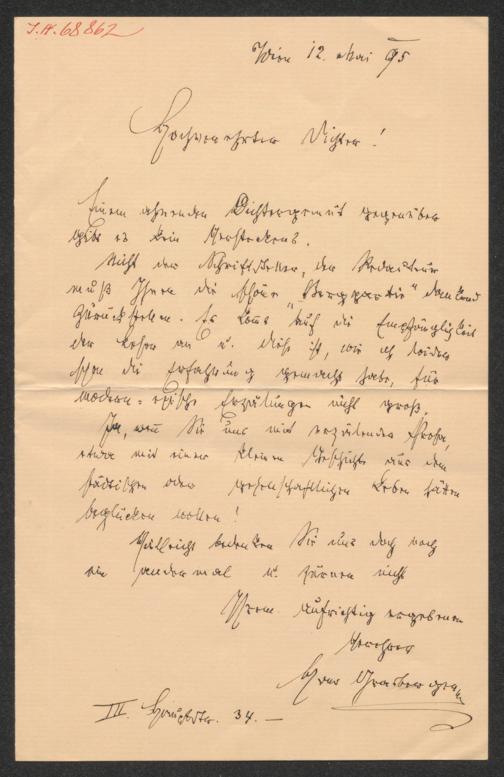 I.N. 68862
Wien 12. Mai 95
Hochverehrter Dichter!
Einem ahnenden Dichtergemüt gegenüber
gibt es kein Verstecken.
Nicht der Schriftsteller, der Redacteur
muß Ihnen die schöne „Bergpartie" dankend
zurückstellen. Es komt auf die Empfänglichkeit
der Leser an u. diese ist, wie ich leider
schon die Erfahrung gemacht habe, für
modern-epische Erzälungen nicht groß.
Ja, wen Sie uns mit erzälender Prosa,
etwa mit einer kleinen Geschichte aus dem
städtischen oder gesellschaftlichen Leben hätten
beglücken wollen!
Vielleicht bedenken Sie uns doch noch
ein andermal u. zürnen nicht
Ihrem aufrichtig ergebenen
Verehrer
Hans Grasberger
III. Hauptstr. 34.—